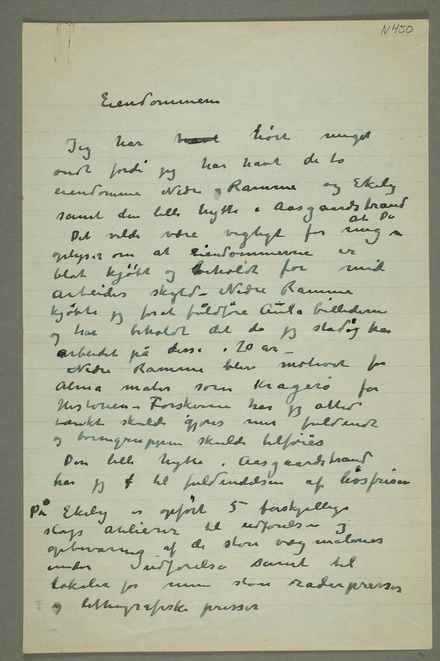 N 450
Eiendommene
Jeg har havt hørt meget
ondt fordi jeg har havt de to
eiendomme Nedre Ramme og Ekely
samt den lille hytte i Aasgaardstrand
Det vilde være vigtigt for mig at De
oplyser om at eiendommerne er
blot kjøbt og beholdt for mit
arbeides skyld – Nedre Ramme
kjøbte jeg for at fuldføre Aula billederne
og har beholdt det da jeg stadig har
arbeidet på disse i 20 aar –
Nedre Ramme blev motivet for
Alma mater som Kragerø for
Historien – Forskerne har jeg altid
tænkt skulde gjøres mer fuldendt
og barnegruppen skulde tilføies
Den lille hytte i Aasgaardstrand
har jeg til fuldendelsen af livsfrisen
På Ekely er opført 5 forskjellige
slags atelierer til udførelse og
opbevaring af de store vægmalerier
under udførelse samt til
lokaler for mine store raderpresser
og lithografiske presser